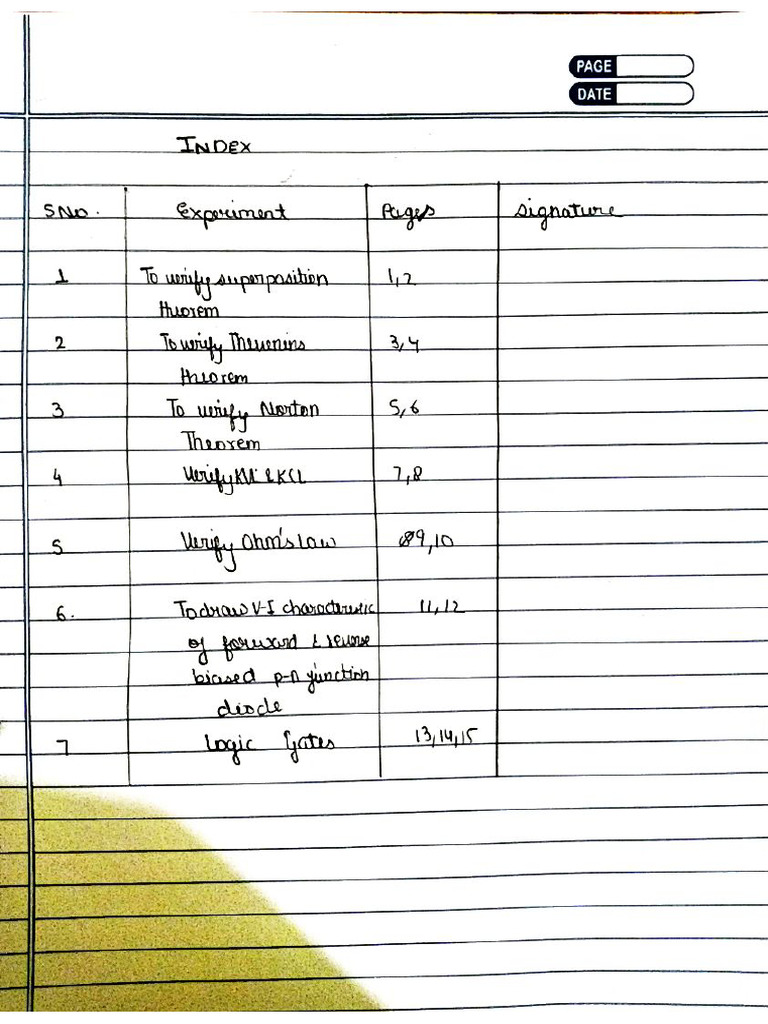 PAGE
DATE
INDEX
S No. Experiment Pages Signature
1 To verify superposition 1,2
theorem
2 To verify Thevenins 3,4
theorem
3 To verify Norton 5,6
Theorem
4 Verify KVL & KCL 7,8
5 Verify Ohm's Law 9,10
6. To draw V-I characteristic 11,12
of forward & reverse
biased p-n junction
diode
7 Logic Gates 13,14,15